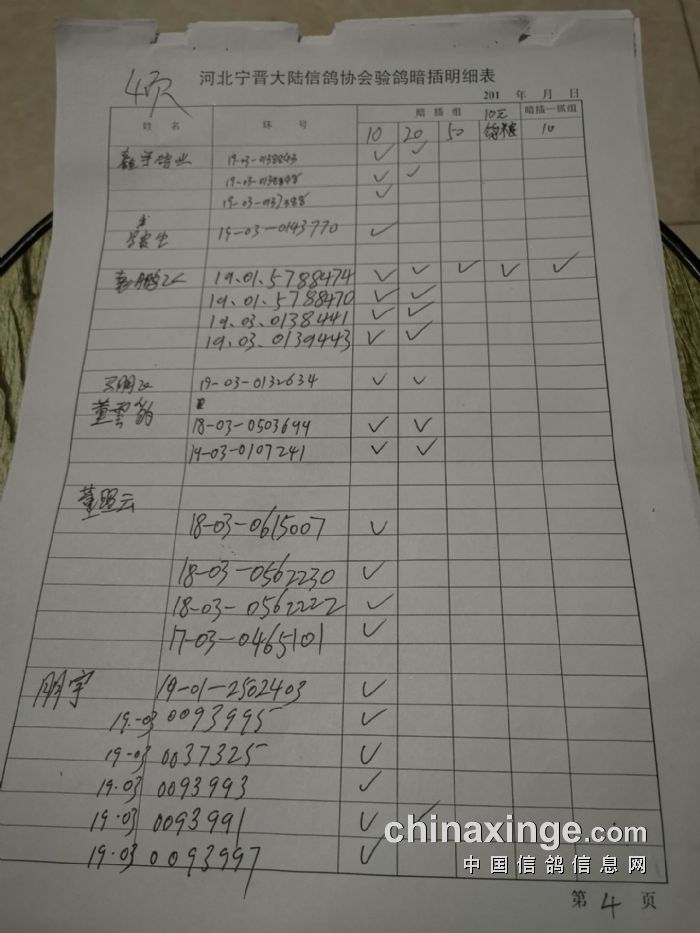 河北宁晋大陆信鸽协会验鸽暗插明细表
201 年 月 日
姓名 环号 暗插组 10元 暗插一抓组
10 20 50 10
19-03-0138843 ✓ ✓
19-03-0138848 ✓ ✓
✓
19-03-0143770 ✓
19.01.5788474 ✓ ✓ ✓ ✓ ✓
19.01.5788470 ✓ ✓
19.03.0138441 ✓ ✓
19.03.0139443 ✓ ✓
19-03-0132634 ✓ ✓
董雲
18-03-0503694 ✓ ✓
19-03-0107241 ✓ ✓
董照云
18-03-0615007 ✓
18-03-0562230 ✓
18-03-0562222 ✓
17-03-0465101 ✓
朋宇 19-01-2502403 ✓
19-03 0093995 ✓
19-03 0037325 ✓
19.03 0093993 ✓
19.03 0093991 ✓ ✓
19.03 0093997 ✓
chinaxinge.com
中国信鸽信息网
第 4 页